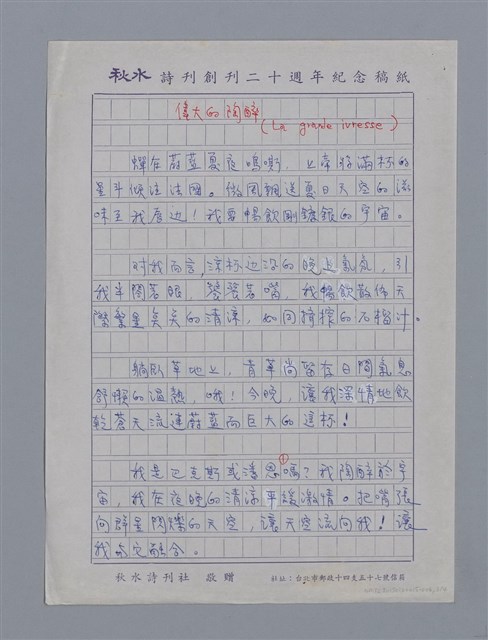 秋水 詩刊創刊二十週年紀念稿紙
偉大的陶醉
(La grande ivresse)
蟬在蔚藍夏夜鳴嘶,上帝將滿杯的
星斗傾注法國。微風飄送夏日天空的滋
味至我唇边!我要暢飲剛鍍銀的宇宙。
对我而言,涼杯边沿的晚上氣氛,引
我半閉著眼,噘著嘴,我暢飲散佈天
際繁星矣矣的清涼,如同搾的石榴汁。
躺臥草地上,青草尚留存日間氣息
舒順的溫熱,哦!今晚,讓我深情地飲
乾蒼天流連蔚藍而巨大的這杯!
我是巴克斯或潘恩嗎?我陶醉於宇
①
宙,我在夜晚的清涼平緩激情。把嘴張
向群星閃爍的天空,讓天空流向我!讓
我與它融合。
秋水詩刊社 敬贈
社址:台北市郵政十四支五十七號信箱